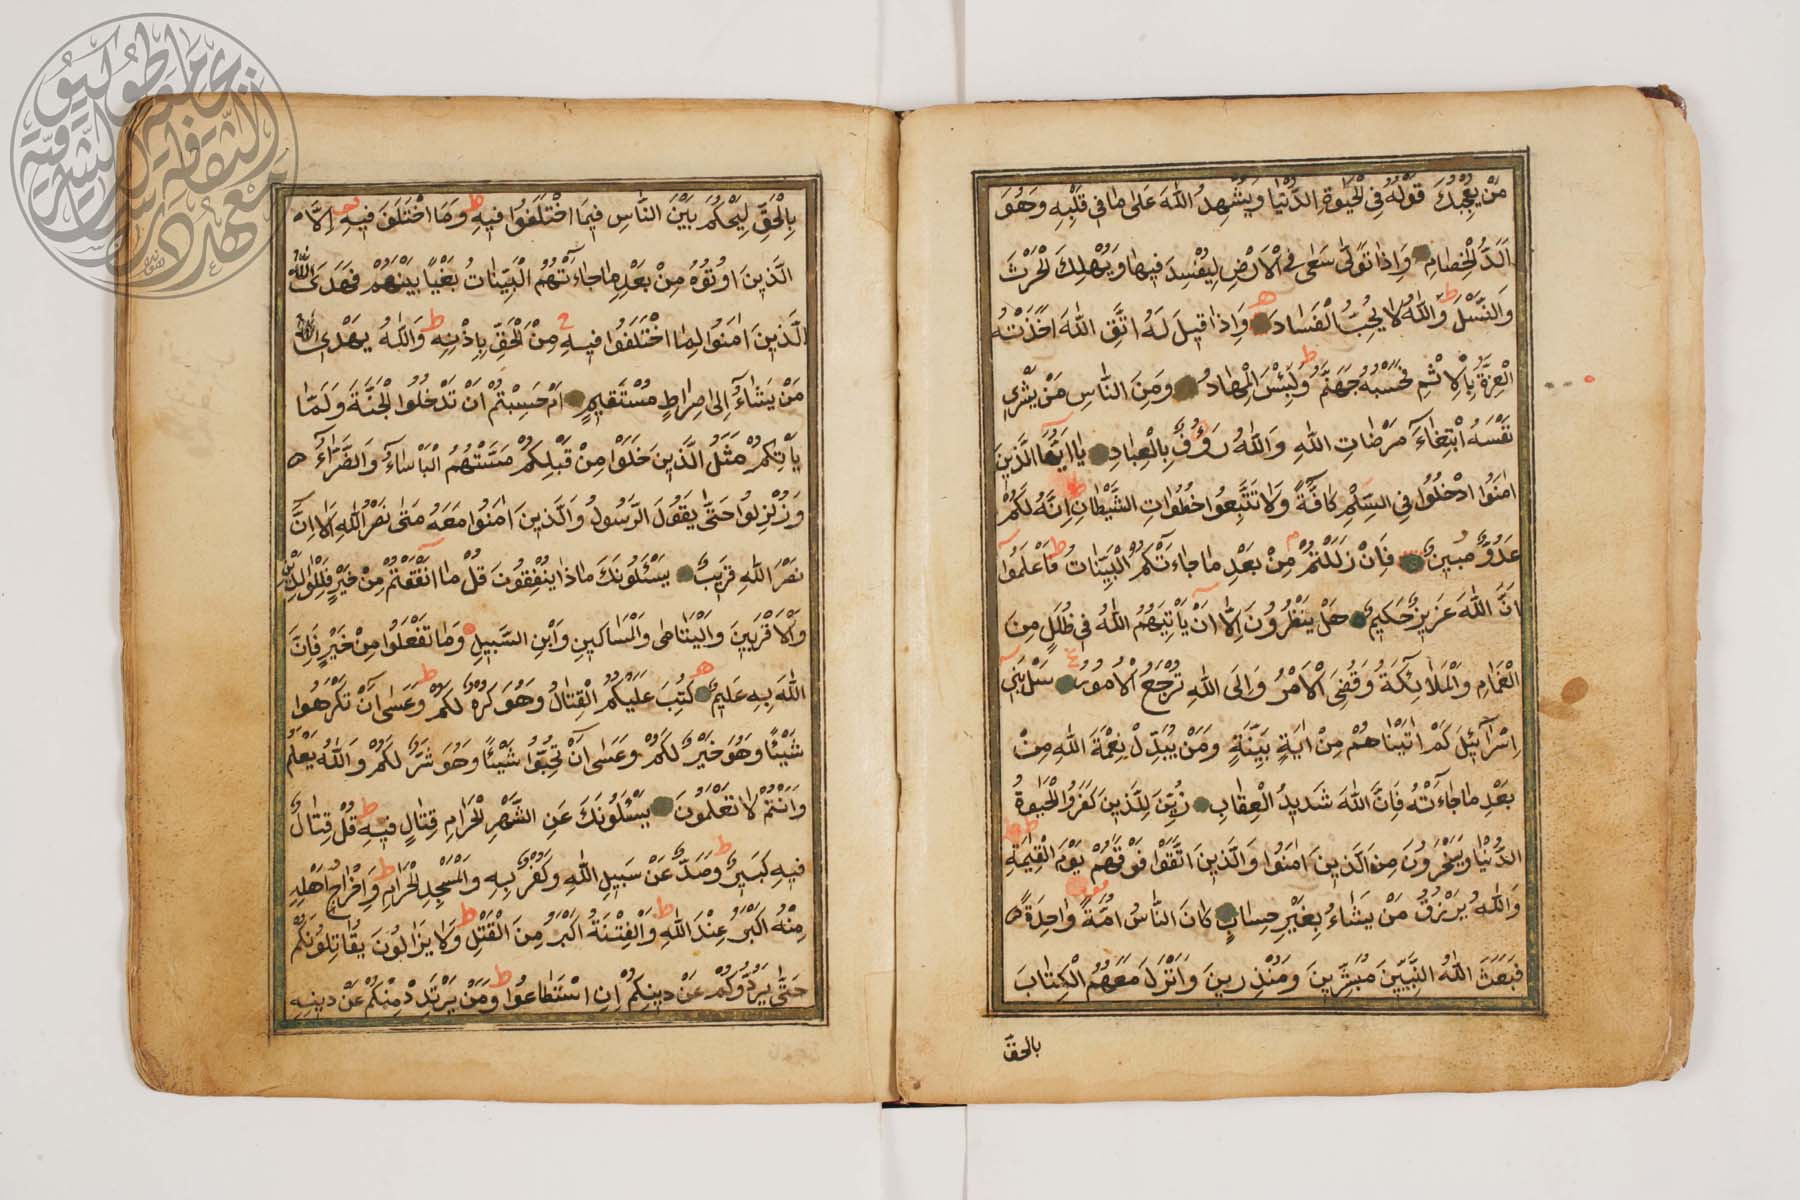 مَنْ يُعْجِبُكَ قَوْلُهُ فِي الْحَيٰوةِ الدُّنْيَا وَيُشْهِدُ اللّٰهَ عَلٰى مَا فِي قَلْبِهِ وَهُوَ
اَلَدُّ الْخِصَامِ وَاِذَا تَوَلّٰى سَعٰى فِي الْاَرْضِ لِيُفْسِدَ فِيهَا وَيُهْلِكَ الْحَرْثَ
وَالنَّسْلَ ط وَاللّٰهُ لَا يُحِبُّ الْفَسَادَ وَاِذَا قِيلَ لَهُ اتَّقِ اللّٰهَ اَخَذَتْهُ
الْعِزَّةُ بِالْاِثْمِ فَحَسْبُهُ جَهَنَّمُ ط وَلَبِئْسَ الْمِهَادُ وَمِنَ النَّاسِ مَنْ يَشْرِي
نَفْسَهُ ابْتِغَاءَ مَرْضَاتِ اللّٰهِ وَاللّٰهُ رَؤُفٌ بِالْعِبَادِ يَا اَيُّهَا الَّذِينَ
اٰمَنُوا ادْخُلُوا فِي السِّلْمِ كَافَّةً وَلَا تَتَّبِعُوا خُطُوَاتِ الشَّيْطَانِ اِنَّهُ لَكُمْ
عَدُوٌّ مُبِينٌ فَاِنْ زَلَلْتُمْ مِنْ بَعْدِ مَا جَاءَتْكُمُ الْبَيِّنَاتُ فَاعْلَمُوا
اَنَّ اللّٰهَ عَزِيزٌ حَكِيمٌ هَلْ يَنْظُرُونَ اِلَّا اَنْ يَأْتِيَهُمُ اللّٰهُ فِي ظُلَلٍ مِنَ
الْغَمَامِ وَالْمَلَائِكَةُ وَقُضِيَ الْاَمْرُ وَاِلَى اللّٰهِ تُرْجَعُ الْاُمُورُ سَلْ بَنِي
اِسْرَائِيلَ كَمْ اٰتَيْنَاهُمْ مِنْ اٰيَةٍ بَيِّنَةٍ وَمَنْ يُبَدِّلْ نِعْمَةَ اللّٰهِ مِنْ
بَعْدِ مَا جَاءَتْهُ فَاِنَّ اللّٰهَ شَدِيدُ الْعِقَابِ زُيِّنَ لِلَّذِينَ كَفَرُوا الْحَيٰوةُ
الدُّنْيَا وَيَسْخَرُونَ مِنَ الَّذِينَ اٰمَنُوا وَالَّذِينَ اتَّقَوْا فَوْقَهُمْ يَوْمَ الْقِيٰمَةِ
وَاللّٰهُ يَرْزُقُ مَنْ يَشَاءُ بِغَيْرِ حِسَابٍ كَانَ النَّاسُ اُمَّةً وَاحِدَةً
فَبَعَثَ اللّٰهُ النَّبِيِّينَ مُبَشِّرِينَ وَمُنْذِرِينَ وَاَنْزَلَ مَعَهُمُ الْكِتَابَ
بالحق
بِالْحَقِّ لِيَحْكُمَ بَيْنَ النَّاسِ فِيمَا اخْتَلَفُوا فِيهِ ط وَمَا اخْتَلَفَ فِيهِ اِلَّا
الَّذِينَ اُوتُوهُ مِنْ بَعْدِ مَا جَاءَتْهُمُ الْبَيِّنَاتُ بَغْيًا بَيْنَهُمْ فَهَدَى اللّٰهُ
الَّذِينَ اٰمَنُوا لِمَا اخْتَلَفُوا فِيهِ مِنَ الْحَقِّ بِاِذْنِهِ ط وَاللّٰهُ يَهْدِي
مَنْ يَشَاءُ اِلٰى صِرَاطٍ مُسْتَقِيمٍ اَمْ حَسِبْتُمْ اَنْ تَدْخُلُوا الْجَنَّةَ وَلَمَّا
يَأْتِكُمْ مَثَلُ الَّذِينَ خَلَوْا مِنْ قَبْلِكُمْ مَسَّتْهُمُ الْبَأْسَاءُ وَالضَّرَّاءُ
وَزُلْزِلُوا حَتّٰى يَقُولَ الرَّسُولُ وَالَّذِينَ اٰمَنُوا مَعَهُ مَتٰى نَصْرُ اللّٰهِ اَلَا اِنَّ
نَصْرَ اللّٰهِ قَرِيبٌ يَسْئَلُونَكَ مَاذَا يُنْفِقُونَ قُلْ مَا اَنْفَقْتُمْ مِنْ خَيْرٍ فَلِلْوَالِدَيْنِ
وَالْاَقْرَبِينَ وَالْيَتَامٰى وَالْمَسَاكِينِ وَابْنِ السَّبِيلِ وَمَا تَفْعَلُوا مِنْ خَيْرٍ فَاِنَّ
اللّٰهَ بِهِ عَلِيمٌ كُتِبَ عَلَيْكُمُ الْقِتَالُ وَهُوَ كُرْهٌ لَكُمْ ط وَعَسٰى اَنْ تَكْرَهُوا
شَيْئًا وَهُوَ خَيْرٌ لَكُمْ وَعَسٰى اَنْ تُحِبُّوا شَيْئًا وَهُوَ شَرٌّ لَكُمْ وَاللّٰهُ يَعْلَمُ
وَاَنْتُمْ لَا تَعْلَمُونَ يَسْئَلُونَكَ عَنِ الشَّهْرِ الْحَرَامِ قِتَالٍ فِيهِ ط قُلْ قِتَالٌ
فِيهِ كَبِيرٌ ط وَصَدٌّ عَنْ سَبِيلِ اللّٰهِ وَكُفْرٌ بِهِ وَالْمَسْجِدِ الْحَرَامِ ط وَاِخْرَاجُ اَهْلِهِ
مِنْهُ اَكْبَرُ عِنْدَ اللّٰهِ ط وَالْفِتْنَةُ اَكْبَرُ مِنَ الْقَتْلِ ط وَلَا يَزَالُونَ يُقَاتِلُونَكُمْ
حَتّٰى يَرُدُّوكُمْ عَنْ دِينِكُمْ اِنِ اسْتَطَاعُوا ط وَمَنْ يَرْتَدِدْ مِنْكُمْ عَنْ دِينِهِ